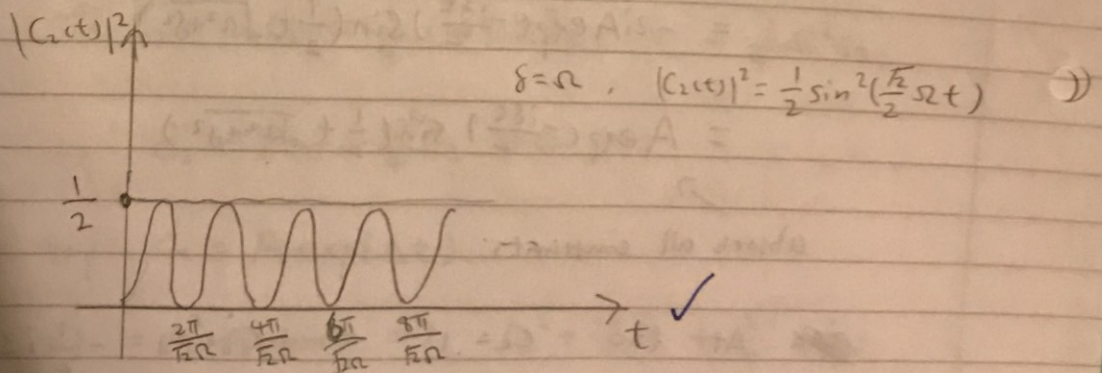 |C₂(t)|²
δ=Ω , |C₂(t)|²= 1/2 sin²(√2/2 Ωt)
1/2
2π/√2Ω 4π/√2Ω 6π/√2Ω 8π/√2Ω
t ✓